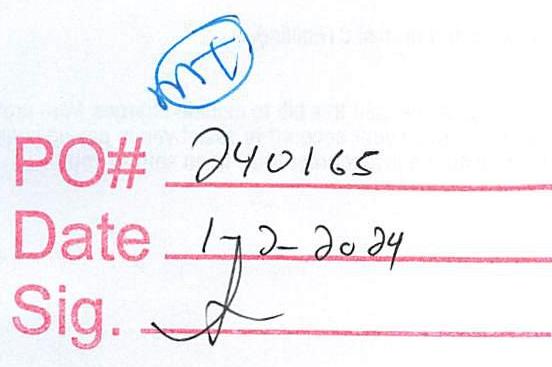 MT
PO# 240165
Date 1-2-2024
Sig.